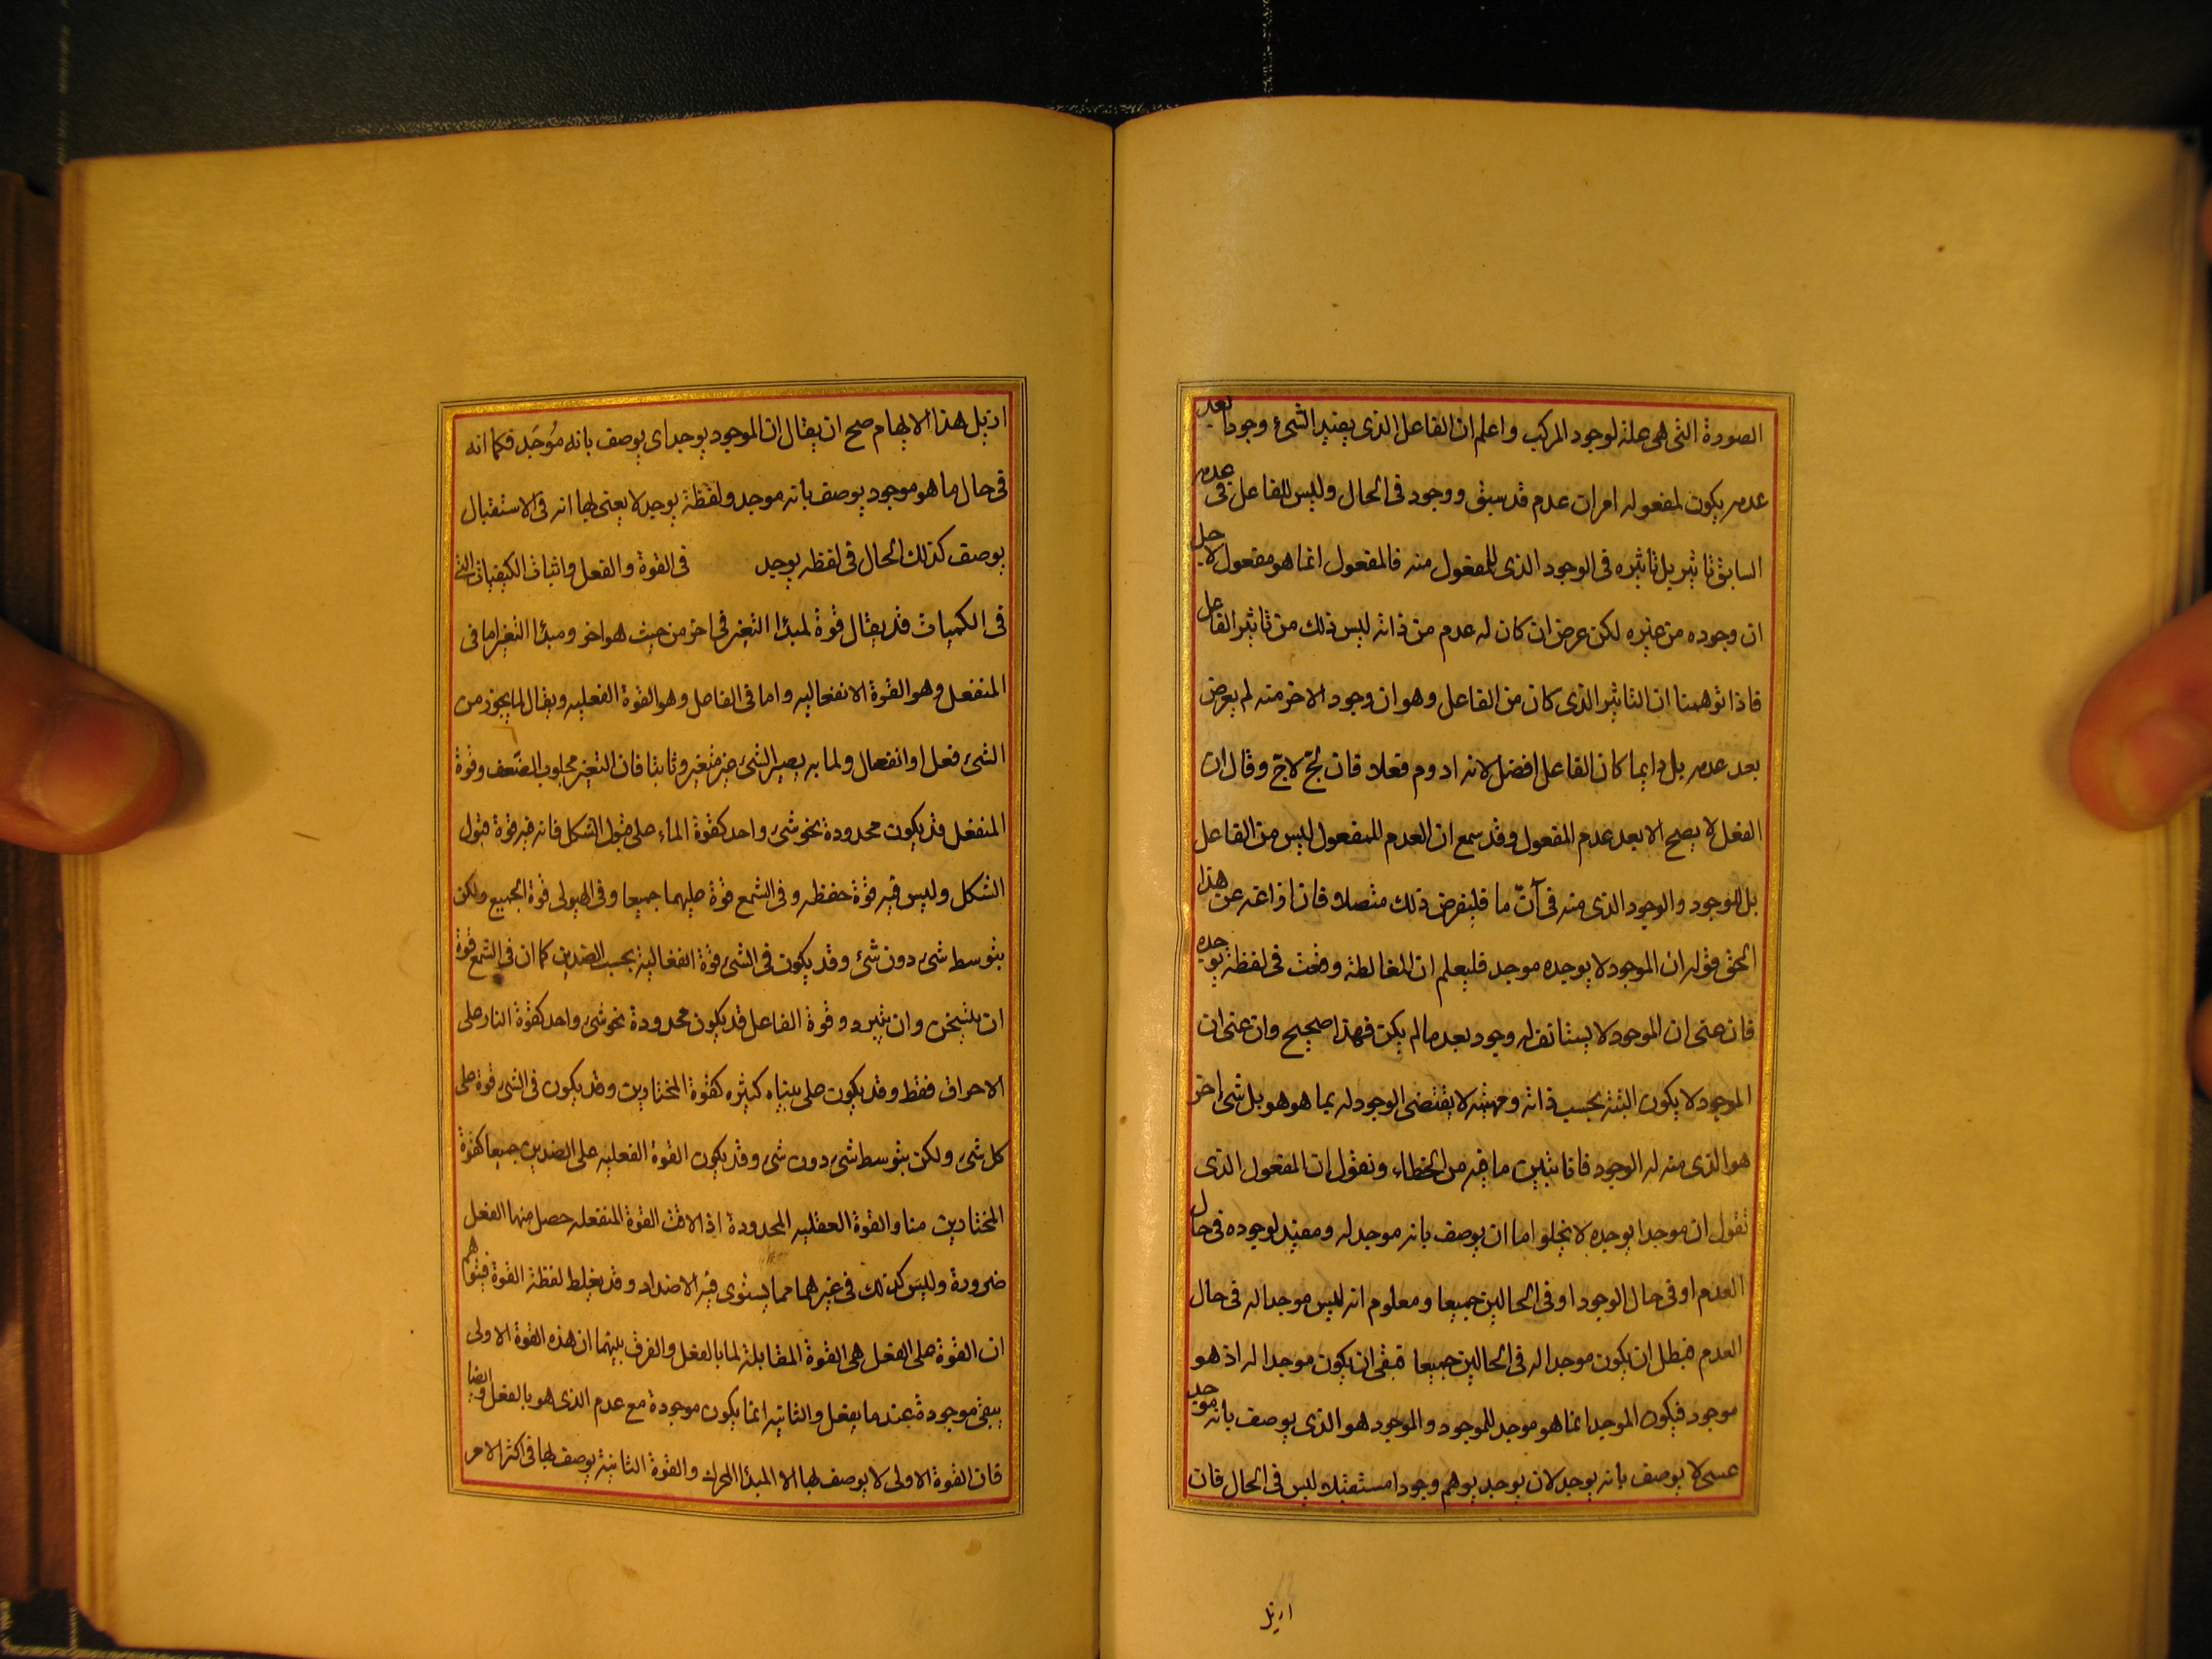 الصورة التى هى علة لوجود المركب واعلم ان الفاعل الذى يفيد الشئ وجودا بعد
عدمه يكون لمفعوله امران عدم قد سبق ووجود فى الحال وليس للفاعل فى عدمه
السابق تاثير بل تاثيره فى الوجود الذى للمفعول منه فالمفعول انما هو مفعول لاجل
ان وجوده من غيره لكن عرض ان كان له عدم من ذاته ليس ذلك من تاثير الفاعل
فاذا توهمنا ان التاثير الذى كان من الفاعل وهو ان وجود الاخر منه لم يعرض
بعد عدمه بل دايما كان الفاعل افضل لانه ادوم فعلا فان لج لاج وقال ان
الفعل لا يصح الا بعد عدم المفعول وقد سمع ان العدم للمفعول ليس من الفاعل
بل الوجود والوجود الذى منه فى آن ما فليفرض ذلك متصلا فان ازاغه عن هذا
الحق قوله ان الموجود لا يوجده موجد فليعلم ان المغالطة وقعت فى لفظة يوجده
فان عنى ان الموجود لا يستانف له وجود بعد ما لم يكن فهذا صحيح وان عنى ان
الموجود لا يكون البتة بحسب ذاته ومهيته لا يقتضى الوجود له بما هو هو بل شى اخر
هو الذى منه له الوجود فانا نبين ما فيه من الخطاء ونقول ان المفعول الذى
نقول ان موجدا يوجده لا يخلو اما ان يوصف بانه موجد له ومفيد لوجوده فى حال
العدم او فى حال الوجود او فى الحالين جميعا ومعلوم انه ليس موجدا له فى حال
العدم فبطل ان يكون موجدا له فى الحالين جميعا فبقى ان يكون موجدا له اذ هو
موجود فيكون الموجد انما هو موجد للموجود والموجود هو الذى يوصف بانه موجد
عسى لا يوصف بانه يوجد لان يوجد يوهم وجودا مستقبلا ليس فى الحال فان
ازيل
ازيل هذا الايهام صح ان يقال ان الموجود يوجد اى يوصف بانه مُوجَد فكما انه
فى حال ما هو موجود يوصف بانه موجد ولفظة يوجد لا يعنى بها انه فى الاستقبال
يوصف كذلك الحال فى لفظه يوجد فى القوة والفعل واثبات الكيفيات التى
فى الكميات قد يقال قوة لمبدا التغير فى اخر من حيث هو اخر ومبدا التغير اما فى
المنفعل وهو القوة الانفعاليه واما فى الفاعل وهو القوة الفعليه ويقال لما يجوز من
الشئ فعل او انفعال ولما به يصير الشئ غير متغير وثابتا فان التغير مجلوب الضعف وقوة
المنفعل قد يكون محدودة نحو شئ واحد كقوة الماء على قبول الشكل فانه فيه قوة قبول
الشكل وليس فيه قوة حفظه وفى الشمع قوة عليهما جميعا وفى الهيولى قوة الجميع ولكن
بتوسط شئ دون شئ وقد يكون فى الشئ قوة انفعالية بحسب الضدين كما ان فى الشمع قوة
ان يتسخن وان يتبرد وقوة الفاعل قد يكون محدودة نحو شئ واحد كقوة النار على
الاحراق فقط وقد يكون على اشياء كثيره كقوة المختارين وقد يكون فى الشئ قوة على
كل شئ ولكن بتوسط شئ دون شئ وقد يكون القوة الفعليه على الضدين جميعا كقوة
المختارين منا والقوة الفعليه المحدودة اذ الاقت القوة المنفعله حصل منها الفعل
ضرورة وليس كذلك فى غيرهما مما يستوى فيه الاضداد وقد يغلط لفظة القوة فيتوهم
ان القوة على الفعل هى القوة المقابلة لما بالفعل والفرق بينهما ان هذه القوة الاولى
يبقى موجودة عندما يفعل والثانيه انما يكون موجودة مع عدم الذى هو بالفعل وايضا
فان القوة الاولى لا يوصف بها الا المبدا المحرك والقوة الثانية يوصف بها فى اكثر الامر